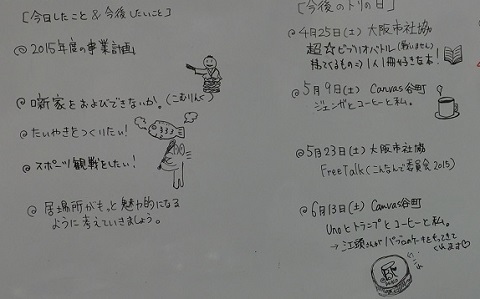 ［今日したこと＆今後したいこと］
@ 2015年度の事業計画
@ 噺家をおよびできないか。(こむりんく)
@ たいやきをつくりたい！
@ スポーツ観戦をしたい！
@ 居場所がもっと魅力的になる
ように考えていきましょう。
［今後のトリの日］
@ 4月25日(土) 大阪市社協
超☆ビブリオバトル(戦いません)
持ってくるもの⇒1人1冊好きな本！
@ 5月9日(土) Canvas谷町
ジェンガとコーヒーと私。
@ 5月23日(土) 大阪市社協
Free Talk(こんなんで委員会2015)
@ 6月13日(土) Canvas谷町
Unoとトランプとコーヒーと私。
→ 江頭さんがパブロのケーキをもってきて
くれます♡